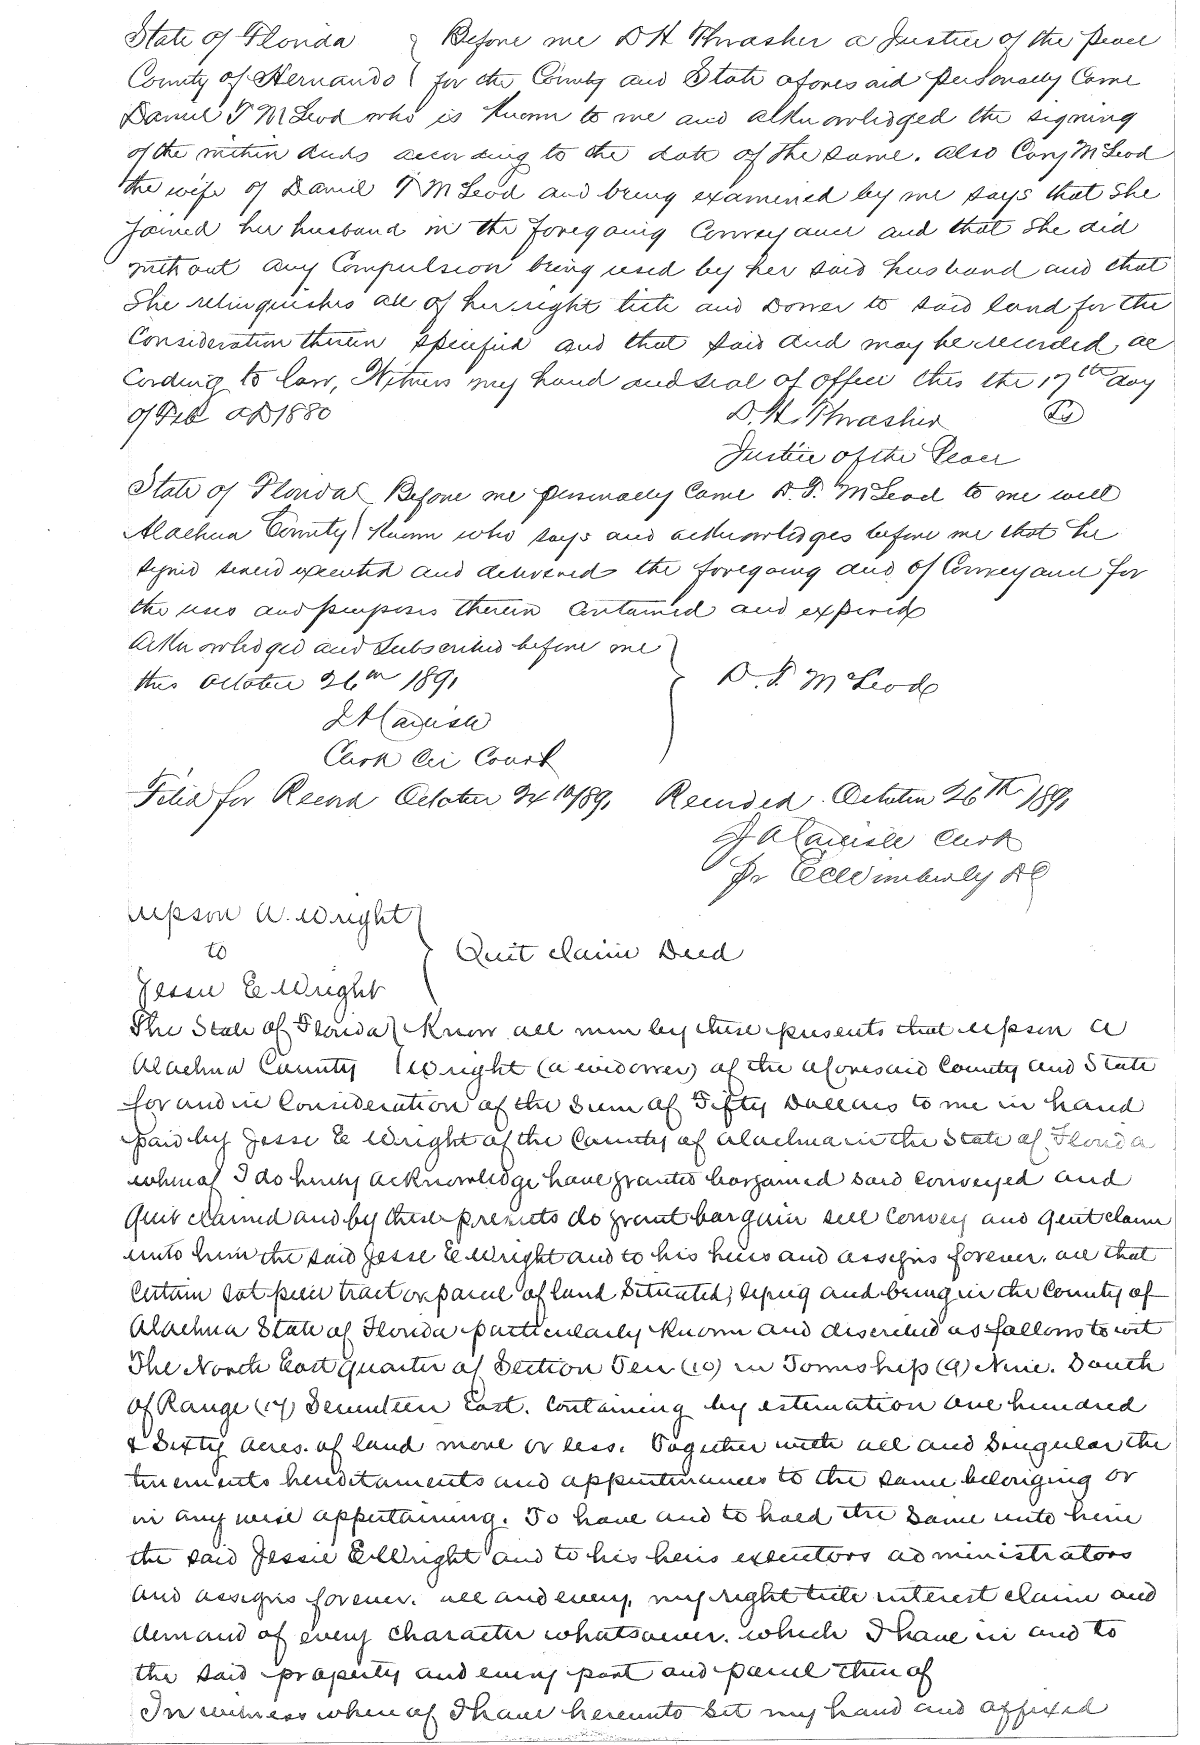 State of Florida } Before me D H Thrasher a Justice of the peace
County of Hernando } for the County and State aforesaid personally Came
Daniel T McLeod who is known to me and acknowledged the signing
of the within deeds according to the date of the same. also McLeod
the wife of Daniel T McLeod and being examined by me says that she
joined her husband in the foregoing Conveyance and that she did
without any Compulsion being used by her said husband and that
She relinquishes all of her right title and Dower to said land for the
Consideration therein specified and that said deed may be recorded ac
cording to law, Witness my hand and seal of office this the 17th day
of Feb AD 1880 D. H. Thrasher (LS)
Justice of the Peace
State of Florida } Before me personally Came D. T. McLeod to me well
Alachua County } known who says and acknowledges before me that he
signed sealed executed and delivered the foregoing deed of Conveyance for
the uses and purposes therein contained and expressed
Acknowledged and Subscribed before me
this October 26th 1891 } D. T. McLeod
J A Carlisle
Clerk Cir Court
Filed for Record October 24th 1891 Recorded October 26th 1891
J A Carlisle Clerk
Pr E C Wimberly DC
Upson A. Wright
to } Quit claim Deed
Jessie E Wright
The State of Florida } Know all men by these presents that Upson A
Alachua County } Wright (a widower) of the aforesaid County and State
for and in Consideration of the Sum of Fifty Dollars to me in hand
paid by Jesse E Wright of the County of Alachua in the State of Florida
whereof I do hereby acknowledge have granted bargained said conveyed and
Quit claimed and by these presents do grant bargain sell convey and quit claim
unto him the said Jesse E Wright and to his heirs and assigns forever. all that
Certain Lot piece tract or parcel of land Situated, lying and being in the County of
Alachua State of Florida particularly known and discribed as follows to wit
The North East quarter of Section Ten (10) in Township (9) Nine. South
of Range (17) Seventeen East. Containing by estimation one hundred
& Sixty acres. of land more or less. Together with all and Singular the
tenements hereditaments and appurtenances to the same belonging or
in any wise appertaining. To have and to hold the Same unto him
the said Jessie E Wright and to his heirs executors administrators
and assigns forever. all and every, my right title interest claim and
demand of every character whatsoever. which I have in and to
the said property and every part and parcel there of
In witness where of I have hereunto set my hand and affixed